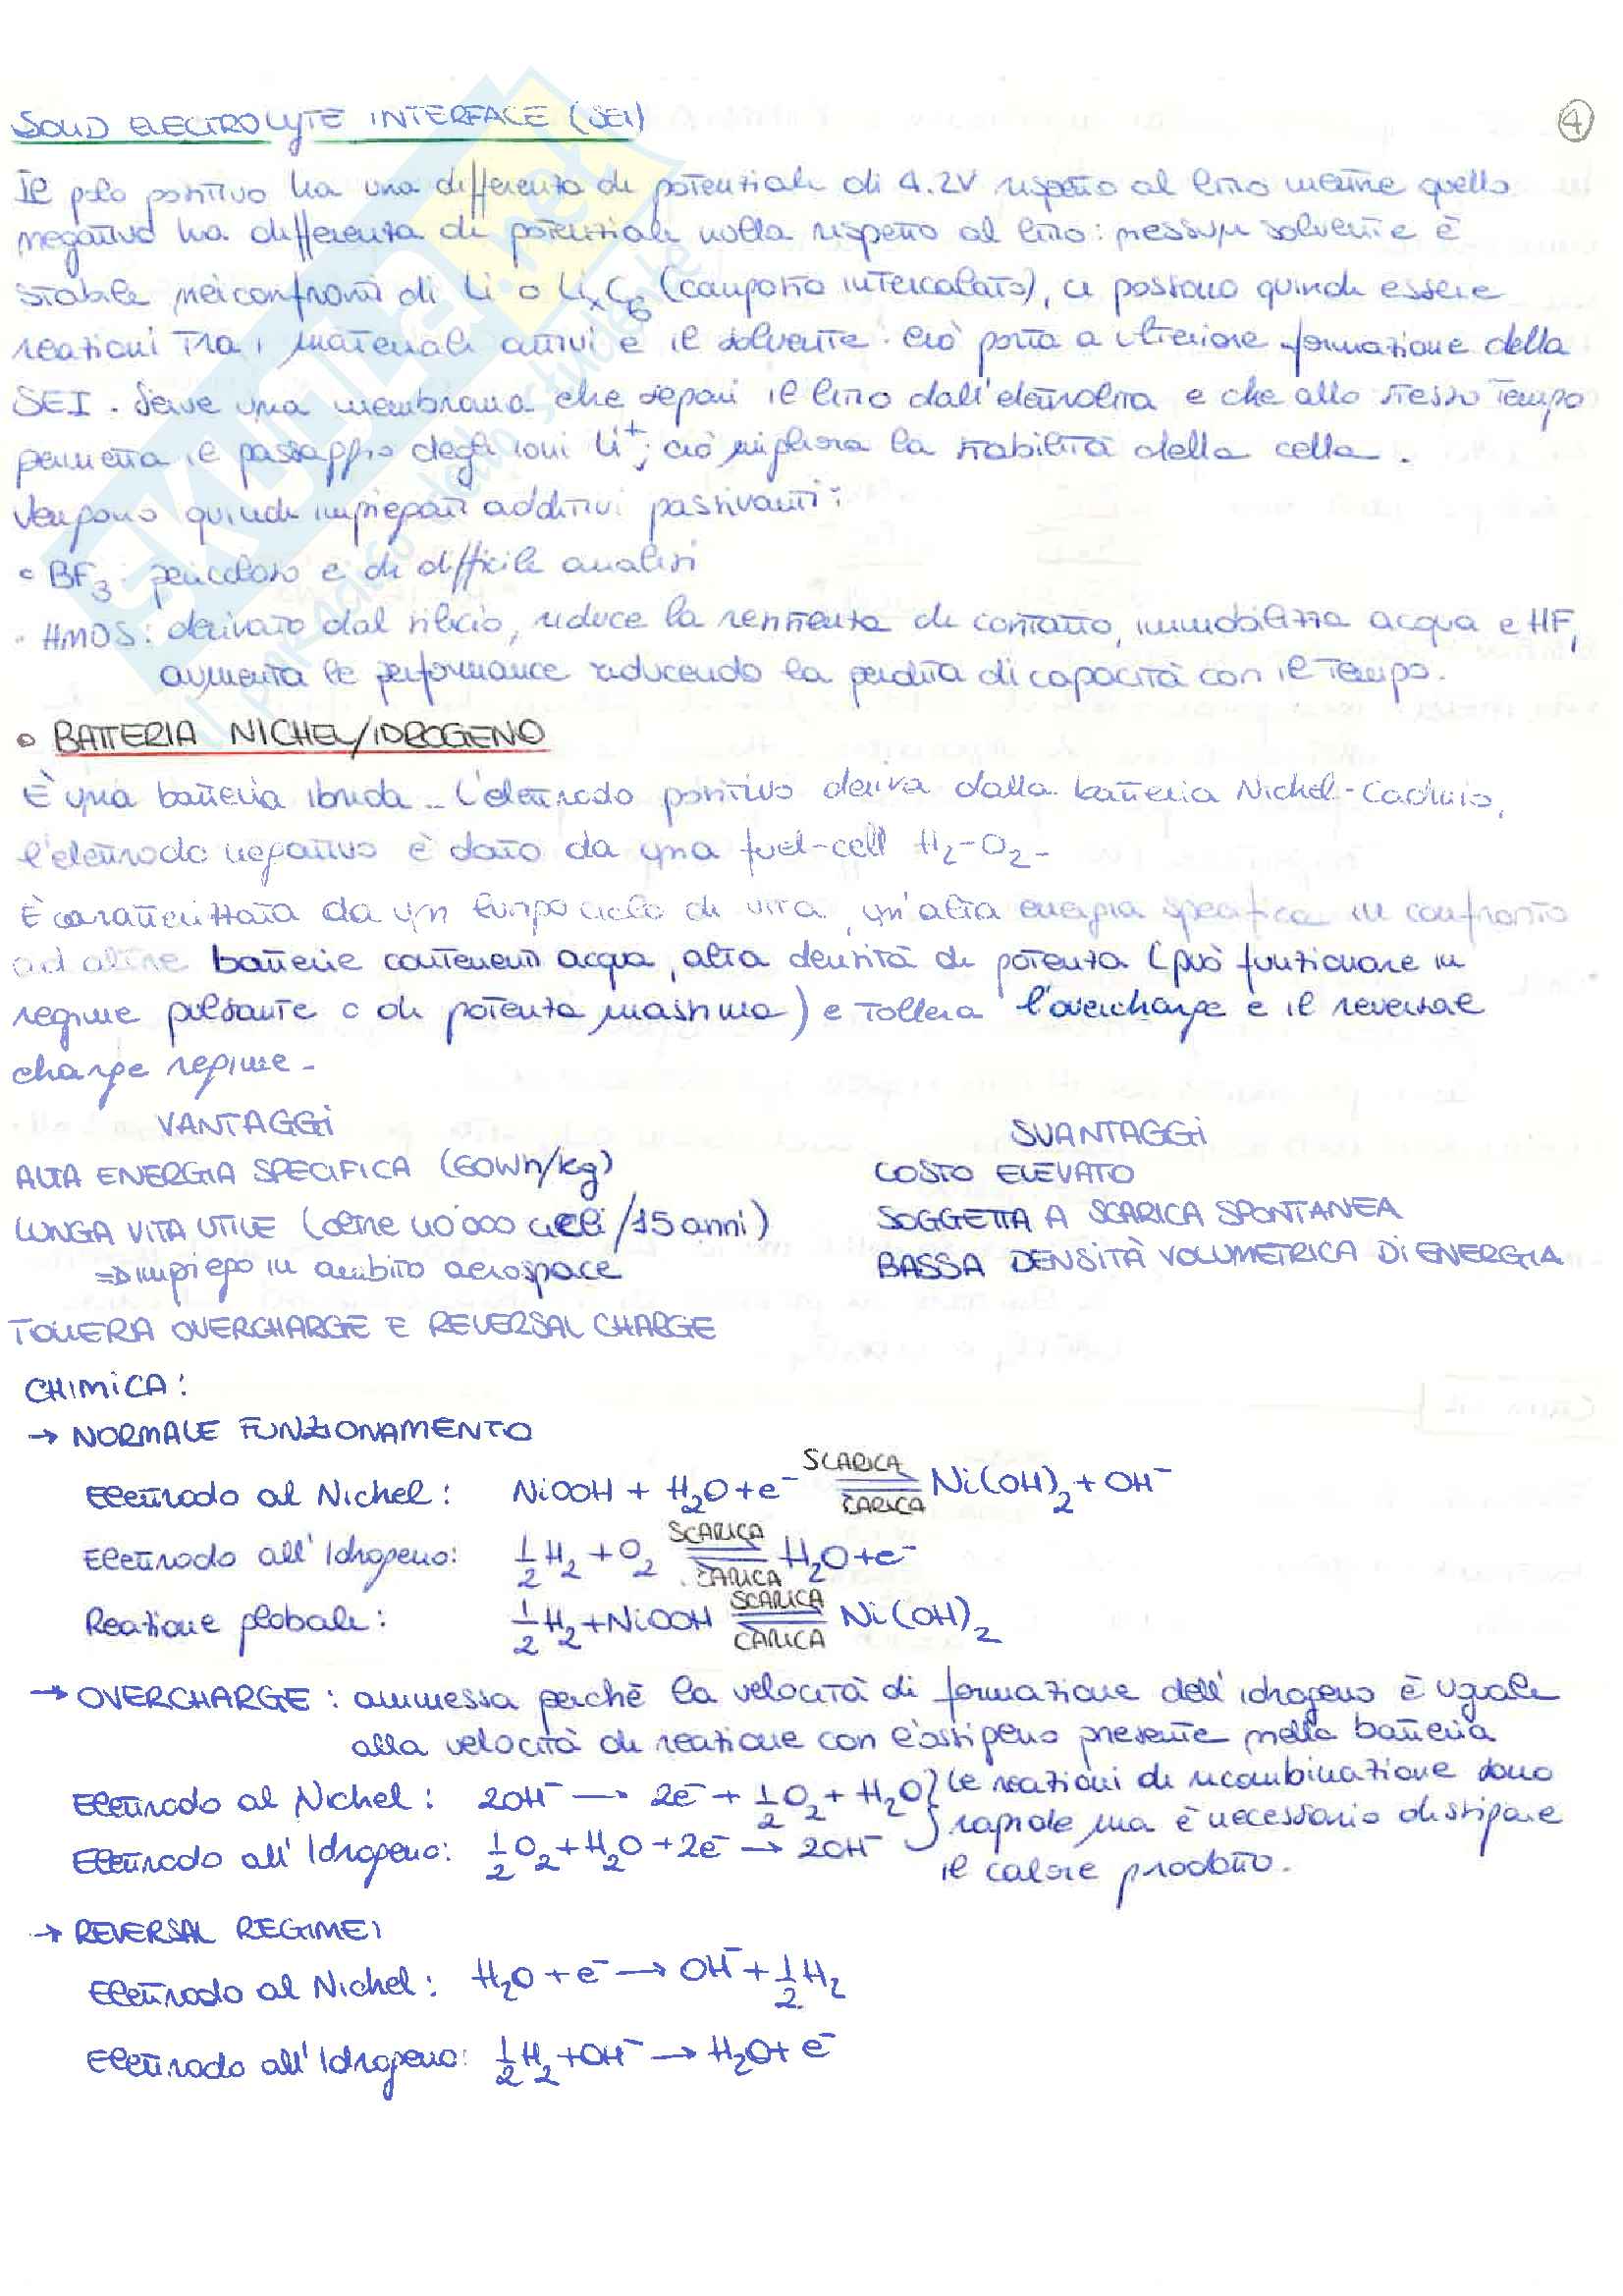 SOLID ELECTROLYTE INTERFACE (SEI)
4
Il polo positivo ha una differenza di potenziale di 4.2V rispetto al litio mentre quello
negativo ha differenza di potenziale nulla rispetto al litio: nessun solvente è
stabile nei confronti di Li o LixC6 (composto intercalato), ci possono quindi essere
reazioni tra i materiali attivi e il solvente. Ciò porta a ulteriore formazione della
SEI. Serve una membrana che separi il litio dall'elettrolita e che allo stesso tempo
permetta il passaggio degli ioni Li⁺; ciò migliora la stabilità della cella.
Vengono quindi impiegati additivi passivanti:
• BF₃: pericoloso e di difficile analisi
• HMOS: derivato dal silicio, riduce la resistenza di contatto, immobilizza acqua e HF,
aumenta le performance riducendo la perdita di capacità con il tempo.
• BATTERIA NICHEL/IDROGENO
È una batteria ibrida. L'elettrodo positivo deriva dalla batteria Nichel-Cadmio,
l'elettrodo negativo è dato da una fuel-cell H₂-O₂.
È caratterizzata da un lungo ciclo di vita, un'alta energia specifica in confronto
ad altre batterie contenenti acqua, alta densità di potenza (può funzionare in
regime pulsante o di potenza massima) e tollera l'overcharge e il reversal
charge regime.
VANTAGGI
SVANTAGGI
ALTA ENERGIA SPECIFICA (60Wh/kg)
COSTO ELEVATO
LUNGA VITA UTILE (oltre 40'000 cicli/15 anni)
SOGGETTA A SCARICA SPONTANEA
⇒ impiego in ambito aerospace
BASSA DENSITÀ VOLUMETRICA DI ENERGIA
TOLLERA OVERCHARGE E REVERSAL CHARGE
CHIMICA:
→ NORMALE FUNZIONAMENTO
Elettrodo al Nichel: NiOOH + H₂O + e⁻ SCARICA ⇌ CARICA Ni(OH)₂ + OH⁻
Elettrodo all'Idrogeno: 1/2 H₂ + O₂ SCARICA ⇌ CARICA H₂O + e⁻
Reazione globale: 1/2 H₂ + NiOOH SCARICA ⇌ CARICA Ni(OH)₂
→ OVERCHARGE: ammessa perché la velocità di formazione dell'idrogeno è uguale
alla velocità di reazione con l'ossigeno presente nella batteria
Elettrodo al Nichel: 2OH⁻ → 2e⁻ + 1/2 O₂ + H₂O } le reazioni di ricombinazione sono
rapide ma è necessario dissipare
Elettrodo all'Idrogeno: 1/2 O₂ + H₂O + 2e⁻ → 2OH⁻
il calore prodotto.
→ REVERSAL REGIME:
Elettrodo al Nichel: H₂O + e⁻ → OH⁻ + 1/2 H₂
Elettrodo all'Idrogeno: 1/2 H₂ + OH⁻ → H₂O + e⁻
SKUOLA.net
il paradiso dello studente